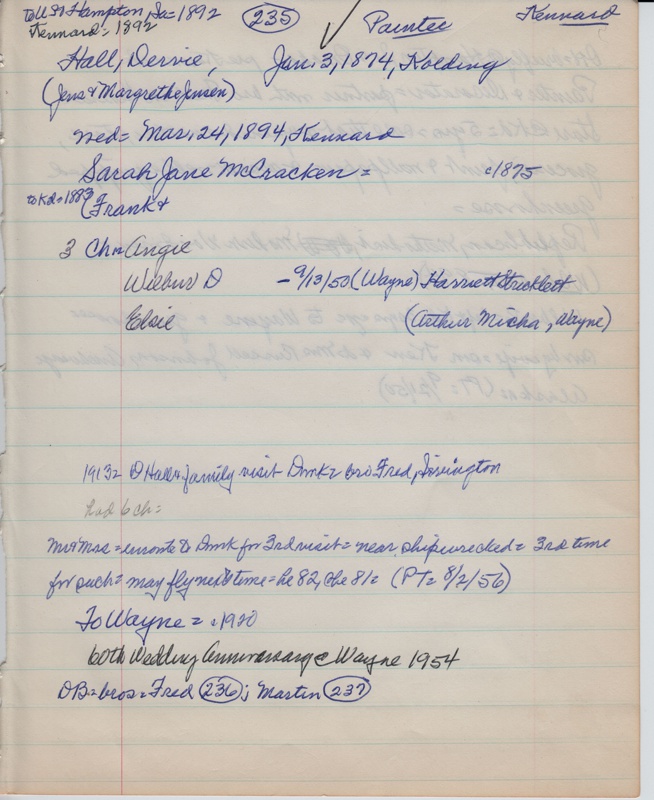 to U.S. Hampton, Ia = 1892 235 Painter Kennard
Kennard = 1892
Hall, Dervie, Jan. 3, 1874, Kolding
(Jens & Margrethe Jensen)
wed = Mar. 24, 1894, Kennard
Sarah Jane McCracken = c1875
to Kd = 1883 (Frank &
3 Chn Angie
Wilbur D - 9/13/50 (Wayne) Harriett Stricklett
Elsie (Arthur Micha, Wayne)
1913 = D Hall & family visit Dmk = bro Fred,
had 6 ch =
Mr & Mrs = enroute to Dmk for 3rd visit = near shipwrecked = 3rd time
for such = may fly next time = he 82, she 81 = (PT = 8/2/56)
To Wayne = c1920
60th Wedding Anniversary @ Wayne 1954
DB = bros = Fred 236; Martin 237